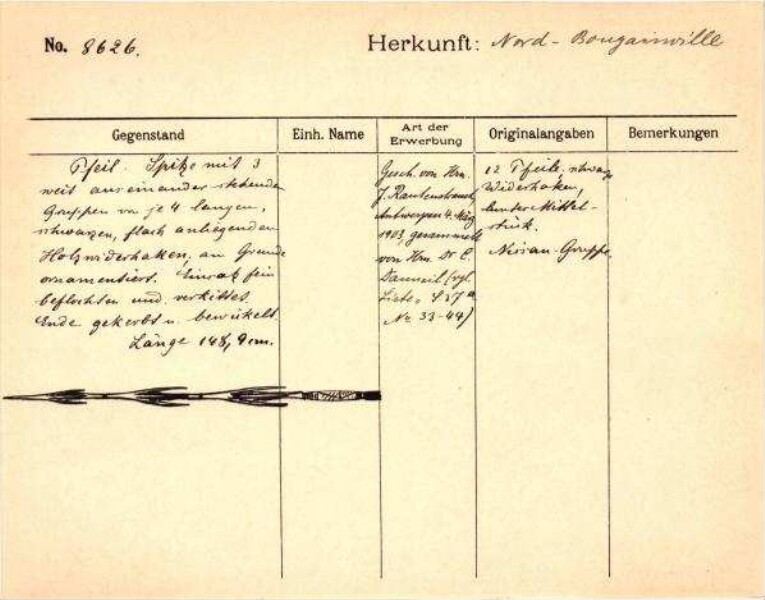 No. 8626.
Herkunft: Nord - Bougainville
Gegenstand
Einh. Name
Art der Erwerbung
Originalangaben
Bemerkungen
Pfeil. Spitze mit 3
weit auseinander stehenden
Gruppen von je 4 langen,
schwarzen, flach anliegenden
Holzwiderhaken, am Grunde
ornamentiert. Einsatz fein
beflochten und verkittet.
Ende gekerbt u. bewickelt.
Länge 148,9 cm.
Gesch. von Hrn.
J. Rautenstrauch,
Antwerpen 4. März
1903, gesammelt
von Hrn. Dr C.
Danneil (vgl.
Liste, S 37a
No 33-44)
12 Pfeile, schwarze
Widerhaken,
bunter Mittel-
stück.
Nissan-Gruppe.